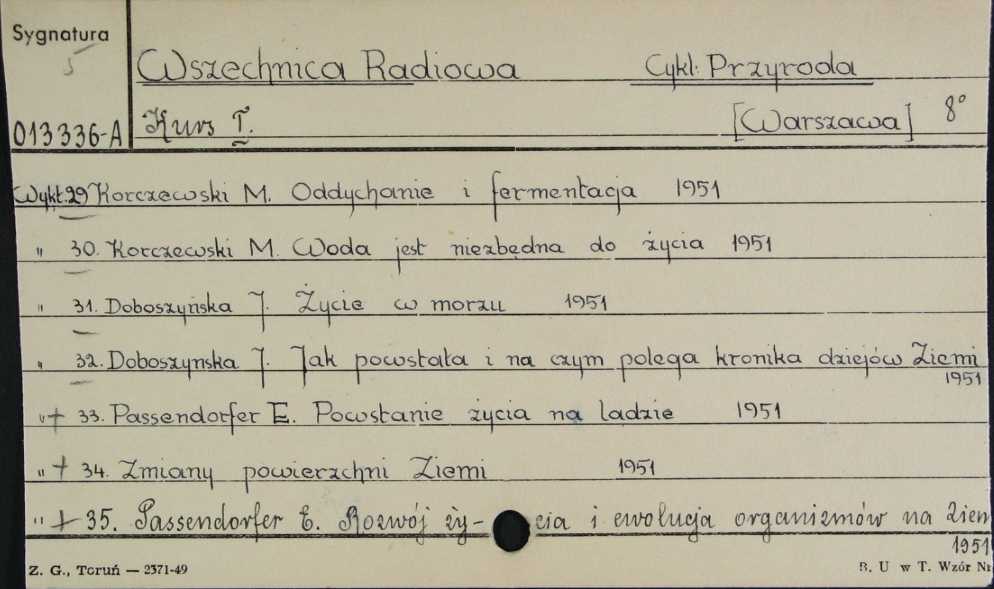 Sygnatura
5
Wszechnica Radiowa Cykl: Przyroda
013336-A Kurs I. [Warszawa] 8°
Wykł.29 Korczewski M. Oddychanie i fermentacja 1951
" 30. Korczewski M. Woda jest niezbędna do życia 1951
" 31. Doboszyńska J. Życie w morzu 1951
" 32. Doboszynska J. Jak powstała i na czym polega kronika dziejów Ziemi
1951
" + 33. Passendorfer E. Powstanie życia na lądzie 1951
" + 34. Zmiany powierzchni Ziemi 1951
" + 35. Passendorfer E. Rozwój ży- cia i ewolucja organizmów na Ziem
1951
Z. G., Toruń — 2371-49 B. U w T. Wzór Nr